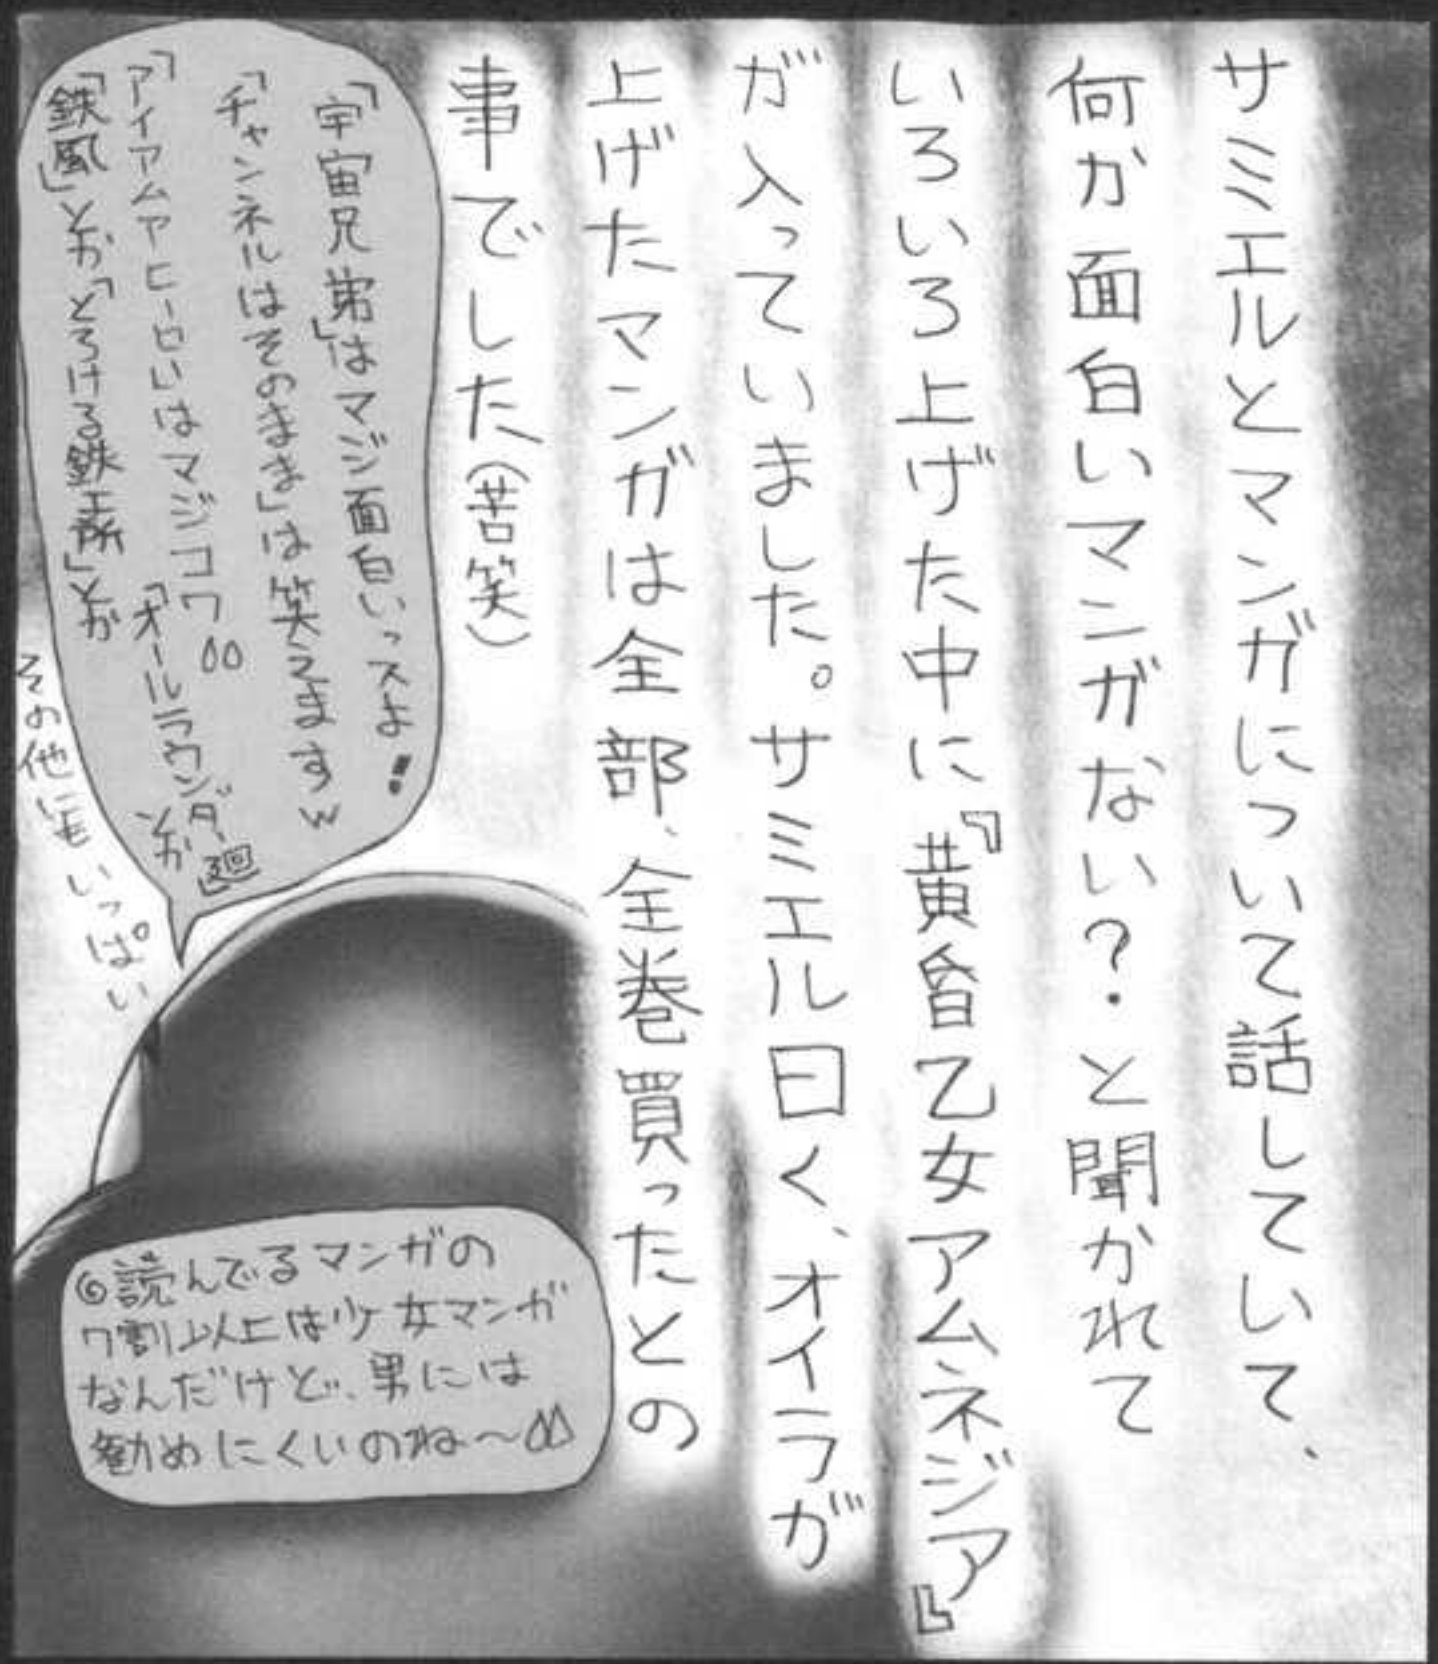 サミエルとマンガについて話していて、
何か面白いマンガない？・と聞かれて
いろいろ上げた中に『黄昏乙女アムネジア』
が入っていました。サミエル曰く、オイラが
上げたマンガは全部、全巻買ったとの
事でした（苦笑）
「宇宙兄弟」はマジ面白いっスよ！
「チャンネルはそのまま」は笑えますw
「アイアムアヒーロー」はマジコワ
「オールラウンダー廻」とか
「鉄風」とか「とろける鉄工所」とか
その他にもいっぱい
◎読んでるマンガの
7割以上は少女マンガ
なんだけど、男には
勧めにくいのね〜